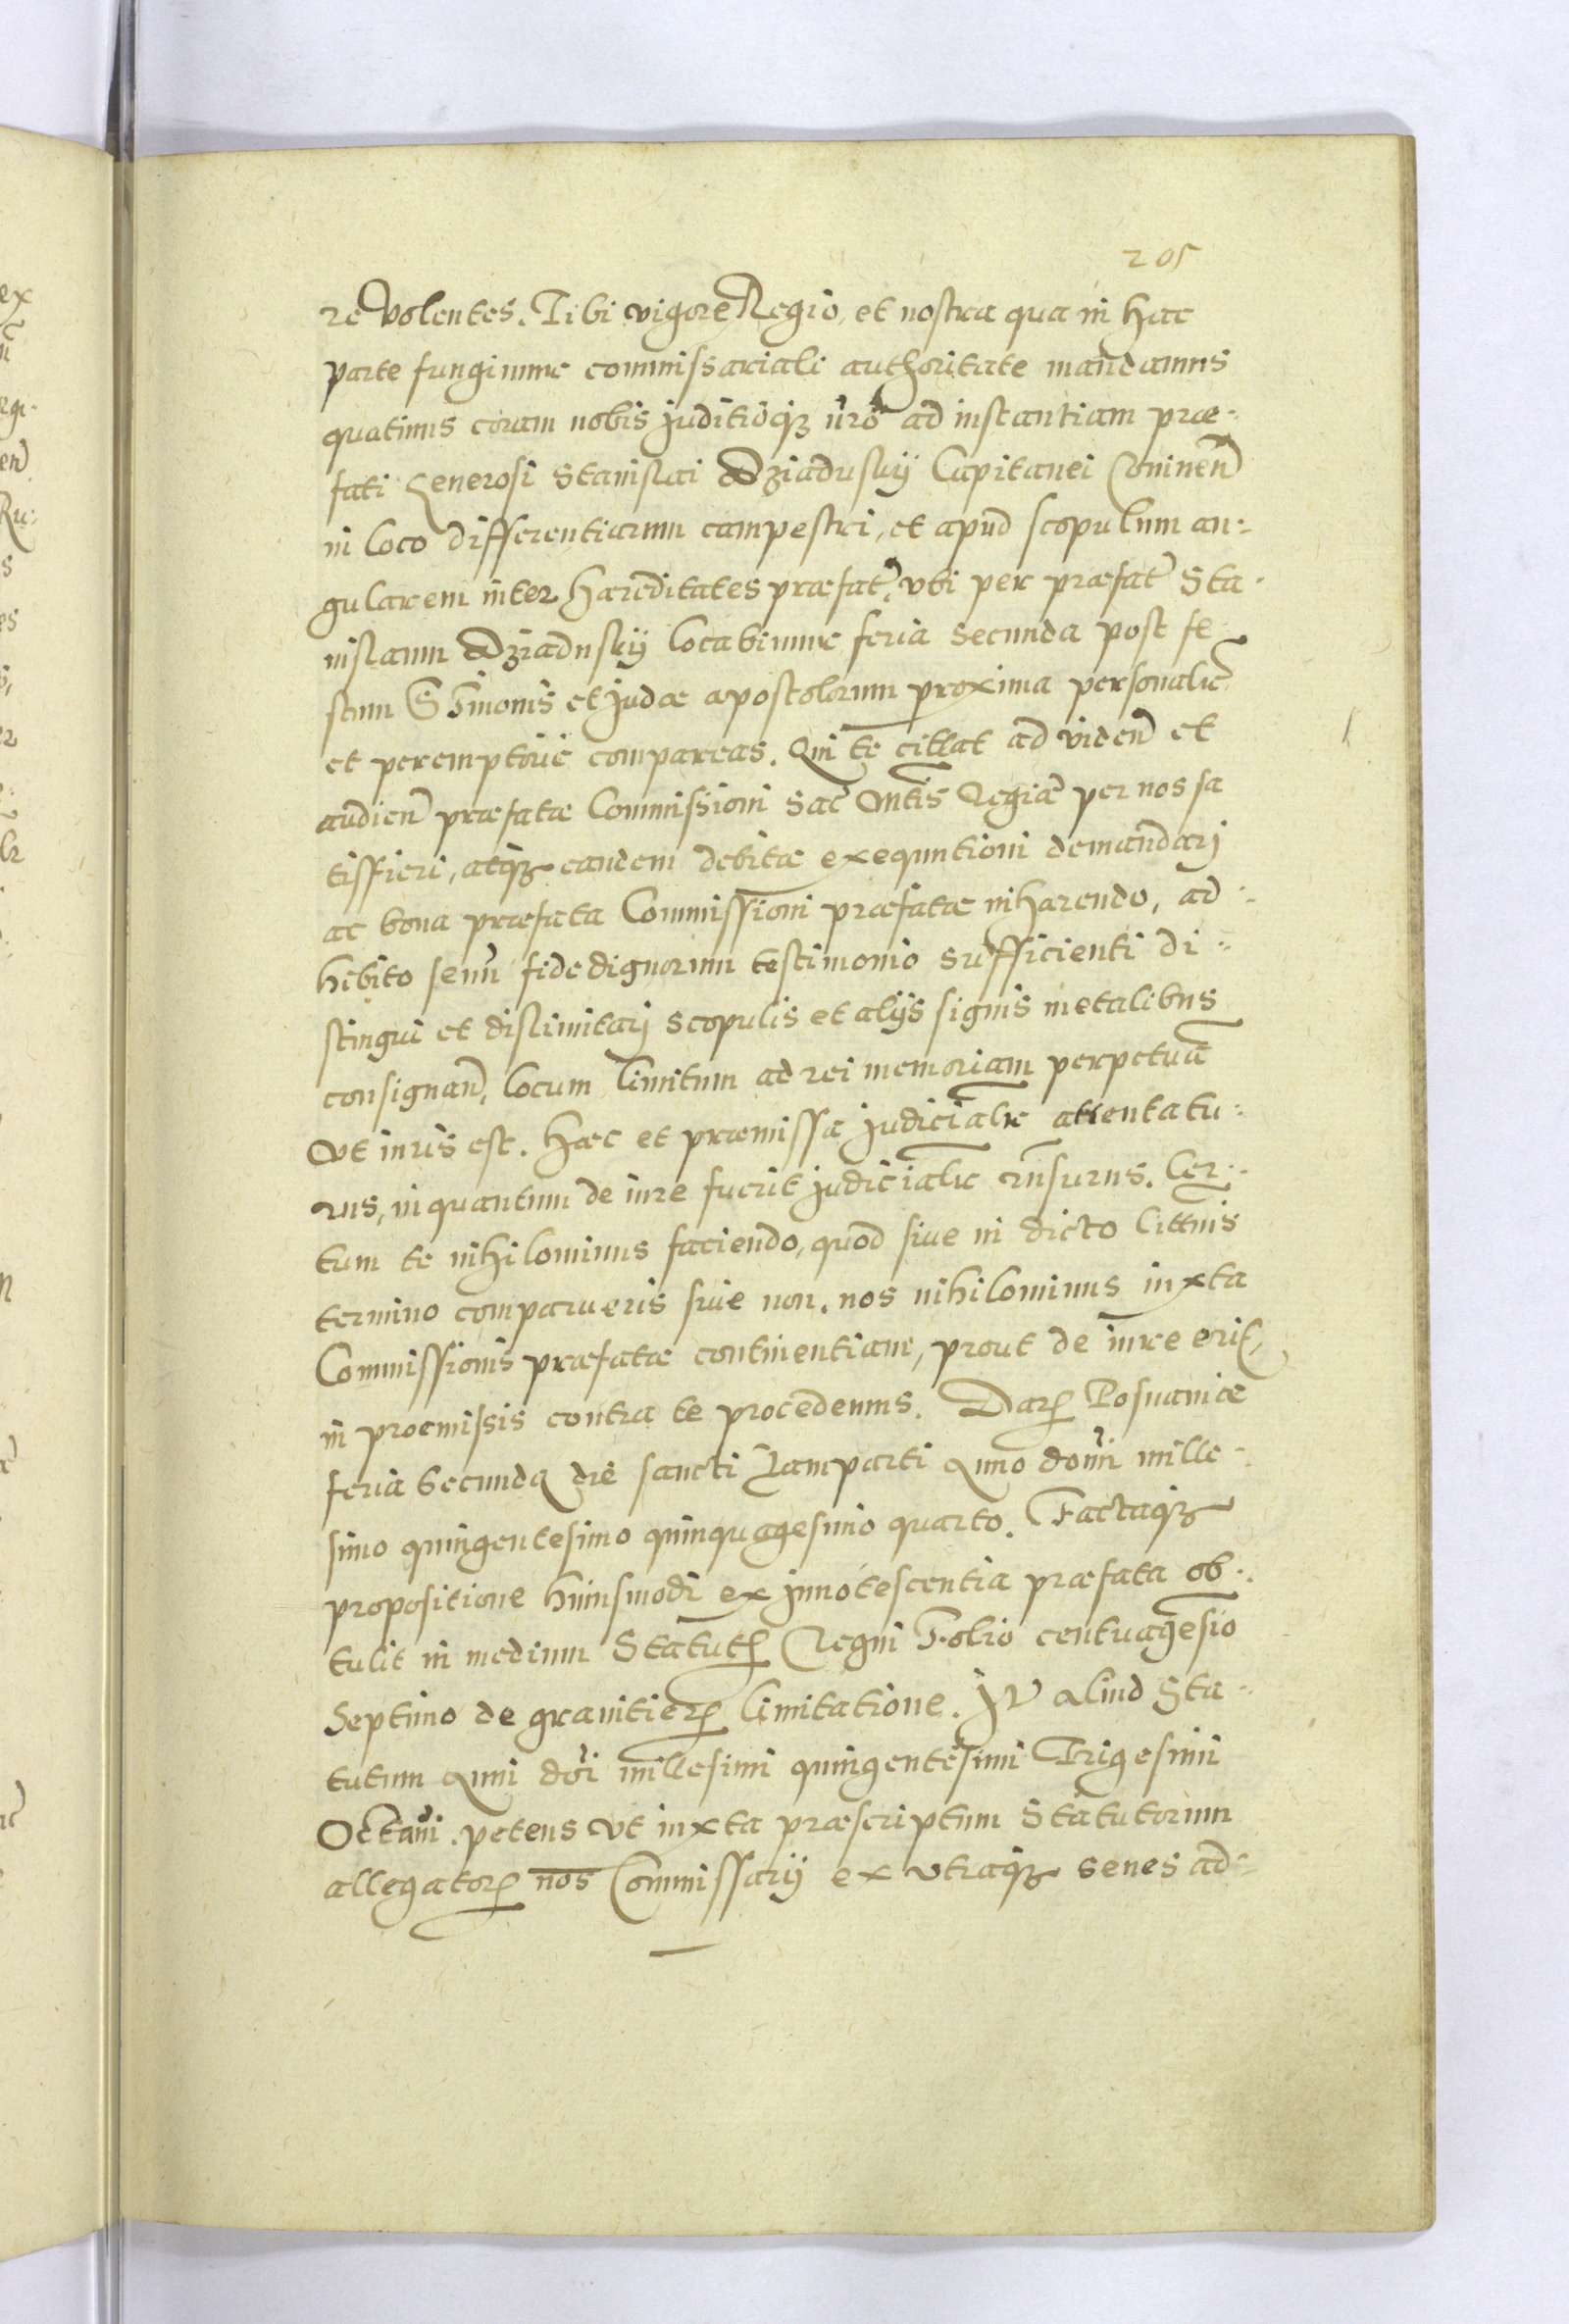 205
re volentes. Tibi vigore Regio, et nostra qua in hac
parte fungimur commissariali authoritate mandamus
quatinus coram nobis juditioq3 nr̃o ad instantiam præ-
fati Generosi Stanislai Dziaduskij Capitanei Coninen̄
in loco differentiarum campestri, et apud scopulum an-
gularem inter hæreditates præfat̃, vbi per præfat̃ Sta-
nislaum Dziaduskij locabimur feria secunda post fe-
stum S Simonis et Judæ apostolorum proxima personalr̃
et peremptorie compareas. Qui te cittat ad viden̄ et
audien̄ præfatæ Commissioni Sac̃ Mtis Regiæ per nos sa
tisffieri, atq3 eandem debitæ exequutioni demandarj
ac bona præfata Commissioni præfatæ inhærendo, ad-
hibito senũ fide dignorum testimonio sufficienti di-
stingui et dislimitarj scopulis et alijs signis metalibus
consignan̄, locum limitum ad rei memoriam perpetuã
Vt iuris est. Hæc et præmissa judicialr̃ attentatu-
rus, in quantum de iure fuerit judicialr̃ rñsurus. Cer-
tum te nihilominus faciendo, quod siue in dicto littis
termino comparueris siue non. nos nihilominus iuxta
Commissionis præfatæ continentiam, prout de iure erit,
in præmissis contra te procedemus. Dat̃ Posnaniæ
feria secunda die sancti Lamparti Anno domĩ mille-
simo quingentesimo quinquagesimo quarto. Factaq3
propositione huiusmodi ex innotescentia præfata ob-
tulit in medium Statut̃ Regni Folio centuagesio
septimo de granitier̃ limitatione. It̃ aliud Sta-
tutum Anni dñi millesimi quingentesimi Trigesimi
Octaui. petens vt iuxta præscriptum Statutorum
allegator̃ nos Commissarij ex vtraq3 senes ad-